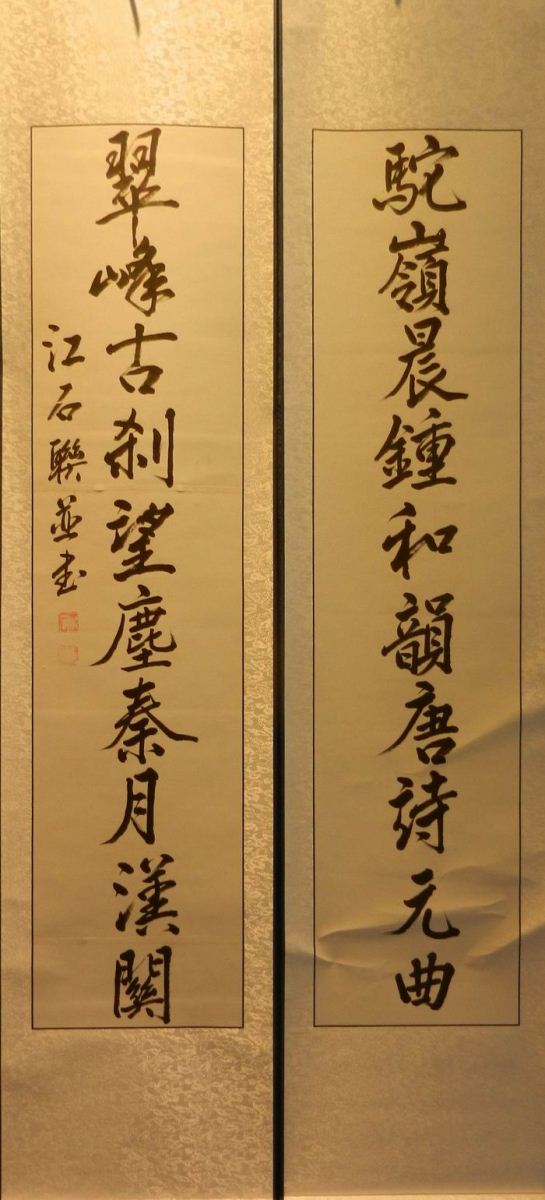 駝嶺晨鍾和韻唐詩元曲
翠峰古刹望塵秦月漢關
江石聯並书